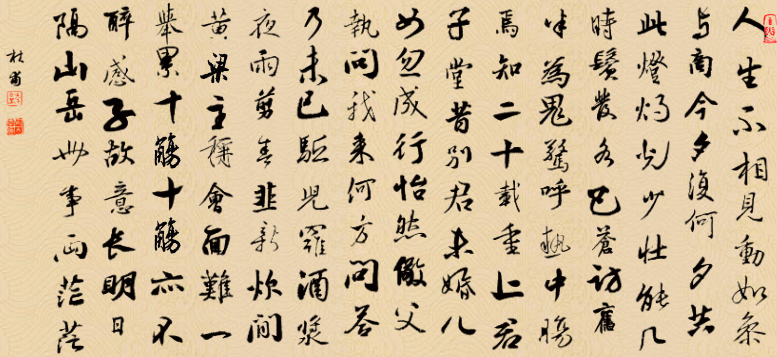 人生不相見動如參
与商今夕復何夕共
此燈燭光少壯能几
時鬢發各已蒼訪舊
半為鬼驚呼熱中腸
焉知二十載重上君
子堂昔別君未婚儿
女忽成行怡然敬父
執問我來何方問答
乃未已驅兒羅酒漿
夜雨剪春韭新炊間
黃粱主稱會面難一
舉累十觴十觴亦不
醉感子故意長明日
隔山岳世事兩茫茫
杜甫